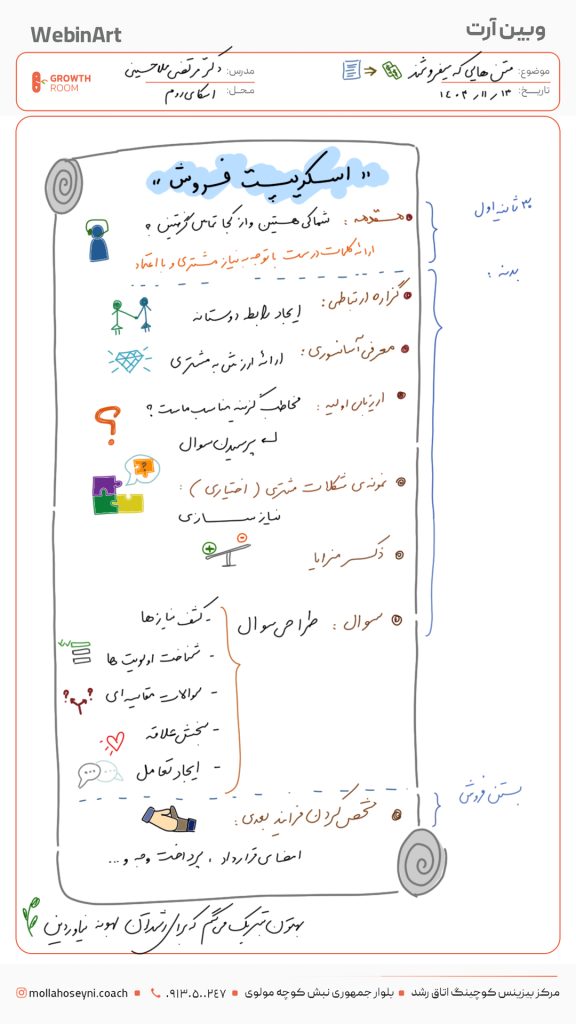 WebinArt
وبین آرت
موضوع: متن هایی که میفروشند
مدرس: دکتر مرتضی ملاحسینی
GROWTH ROOM
تاریخ: ۱۴۰۴/۱۱/۱۳
محل: اسکای روم
"اسکریپت فروش"
۳۰ ثانیه اول
مقدمه: شما کی هستین و از کجا تماس گرفتین؟
ارائه کلمات درست با توجه به نیاز مشتری و با اعتماد
بدنه:
گزاره ارتباطی: ایجاد رابطه دوستانه
معرفی آسانسوری: ارائه ارزش به مشتری
ارزیابی اولیه: مخاطب گزینه مناسب ماست؟
پرسیدن سوال
نمونه‌ی مشکلات مشتری (اختیاری):
نیاز سازی
ذکر مزایا
سوال: طراحی سوال
- کشف نیازها
- شناخت اولویت ها
- سوالات مقایسه ای
- سنجش علاقه
- ایجاد تعامل
بستن فروش
مشخص کردن فرایند بعدی:
امضای قرارداد، پرداخت وجه و...
بهتون تبریک میگم که برای رشدتان بهونه نیاوردین
مرکز بیزینس کوچینگ اتاق رشد ▪ بلوار جمهوری نبش کوچه مولوی ▪ ۰۹۱۳۰۵۰۰۲۴۷ ▪ mollahoseyni.coach